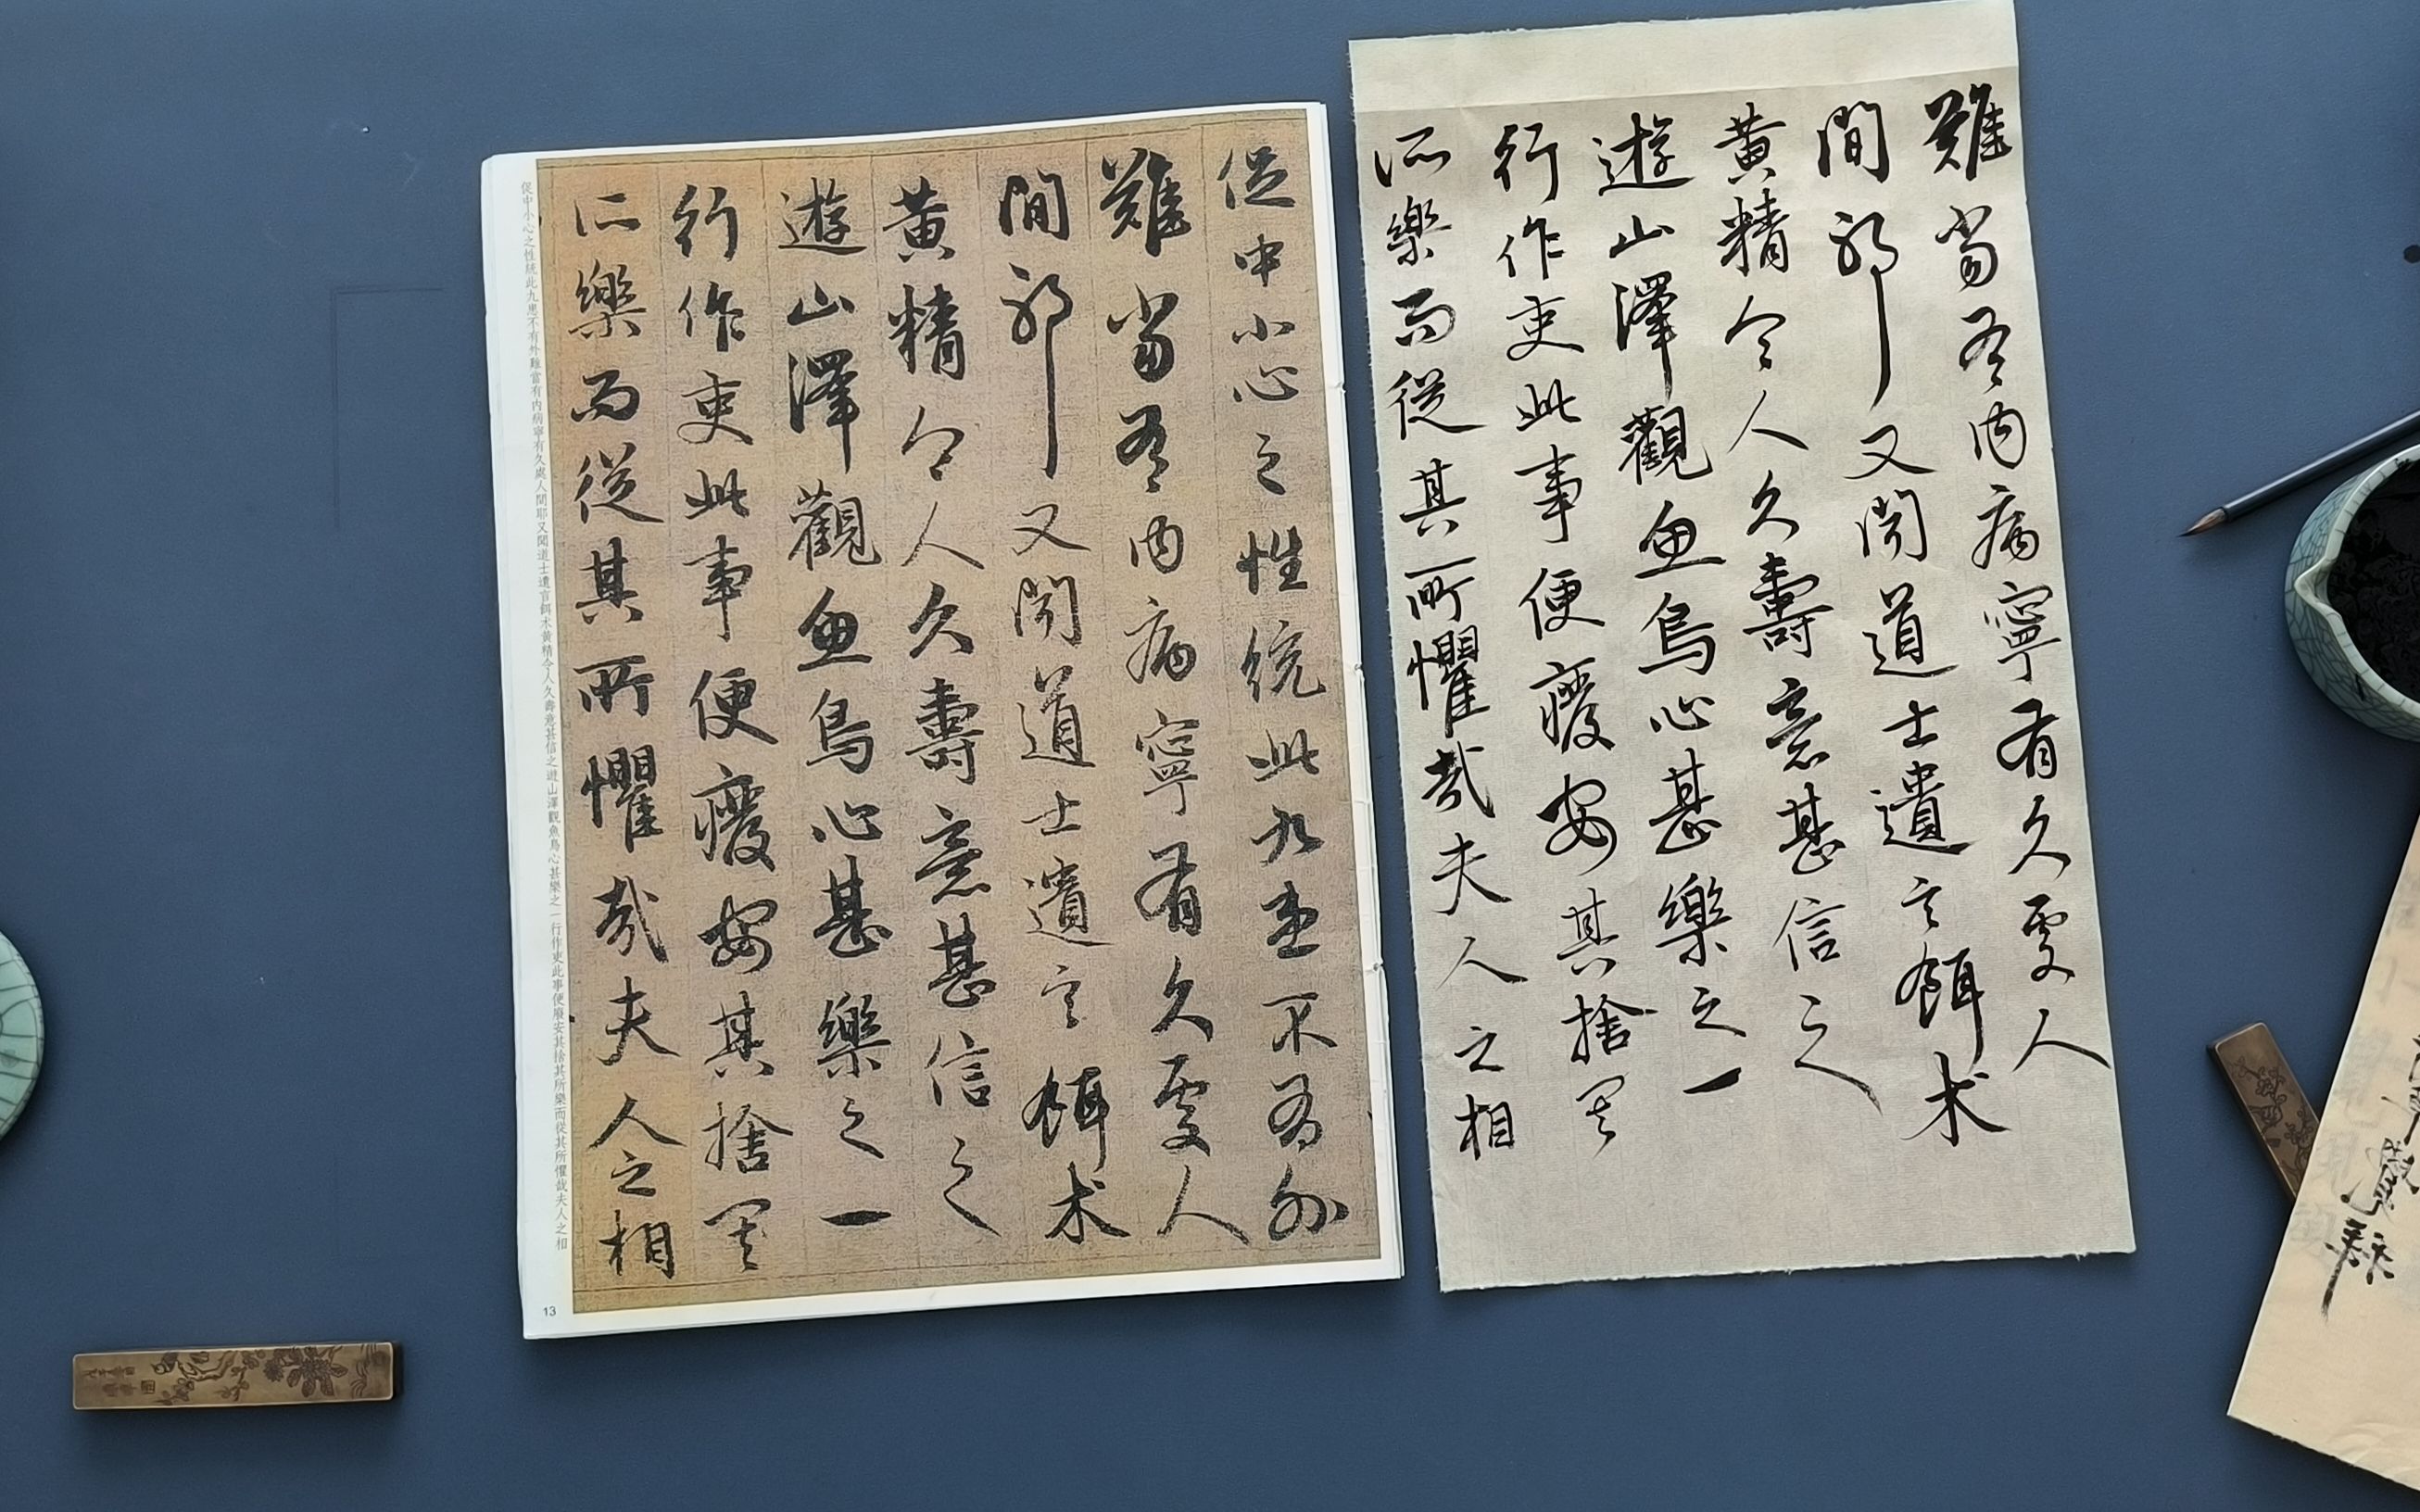 促中小心之性統此九患不有外
難當有内病寧有久處人
間耶又聞道士遺言餌术
黃精令人久壽意甚信之
遊山澤觀魚鳥心甚樂之一
行作吏此事便廢安其捨其
所樂而從其所懼哉夫人之相
促中小心之性統此九患不有外難當有内病寧有久處人間耶又聞道士遺言餌术黃精令人久壽意甚信之遊山澤觀魚鳥心甚樂之一行作吏此事便廢安其捨其所樂而從其所懼哉夫人之相
13
難當有内病寧有久處人
間耶又聞道士遺言餌术
黃精令人久壽意甚信之
遊山澤觀魚鳥心甚樂之一
行作吏此事便廢安其捨其
所樂而從其所懼哉夫人之相